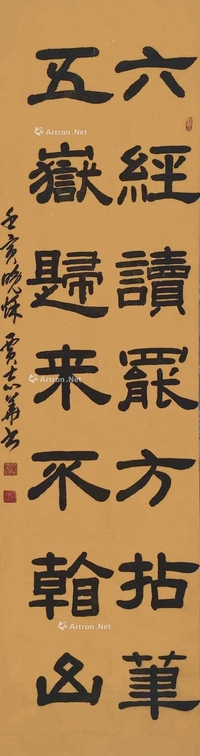 六經讀罷方拈筆
五嶽歸来不看山
壬寅晚秋 賈志華书
Artron.Net
Artron.Net
Artron.Net
Artron.Net